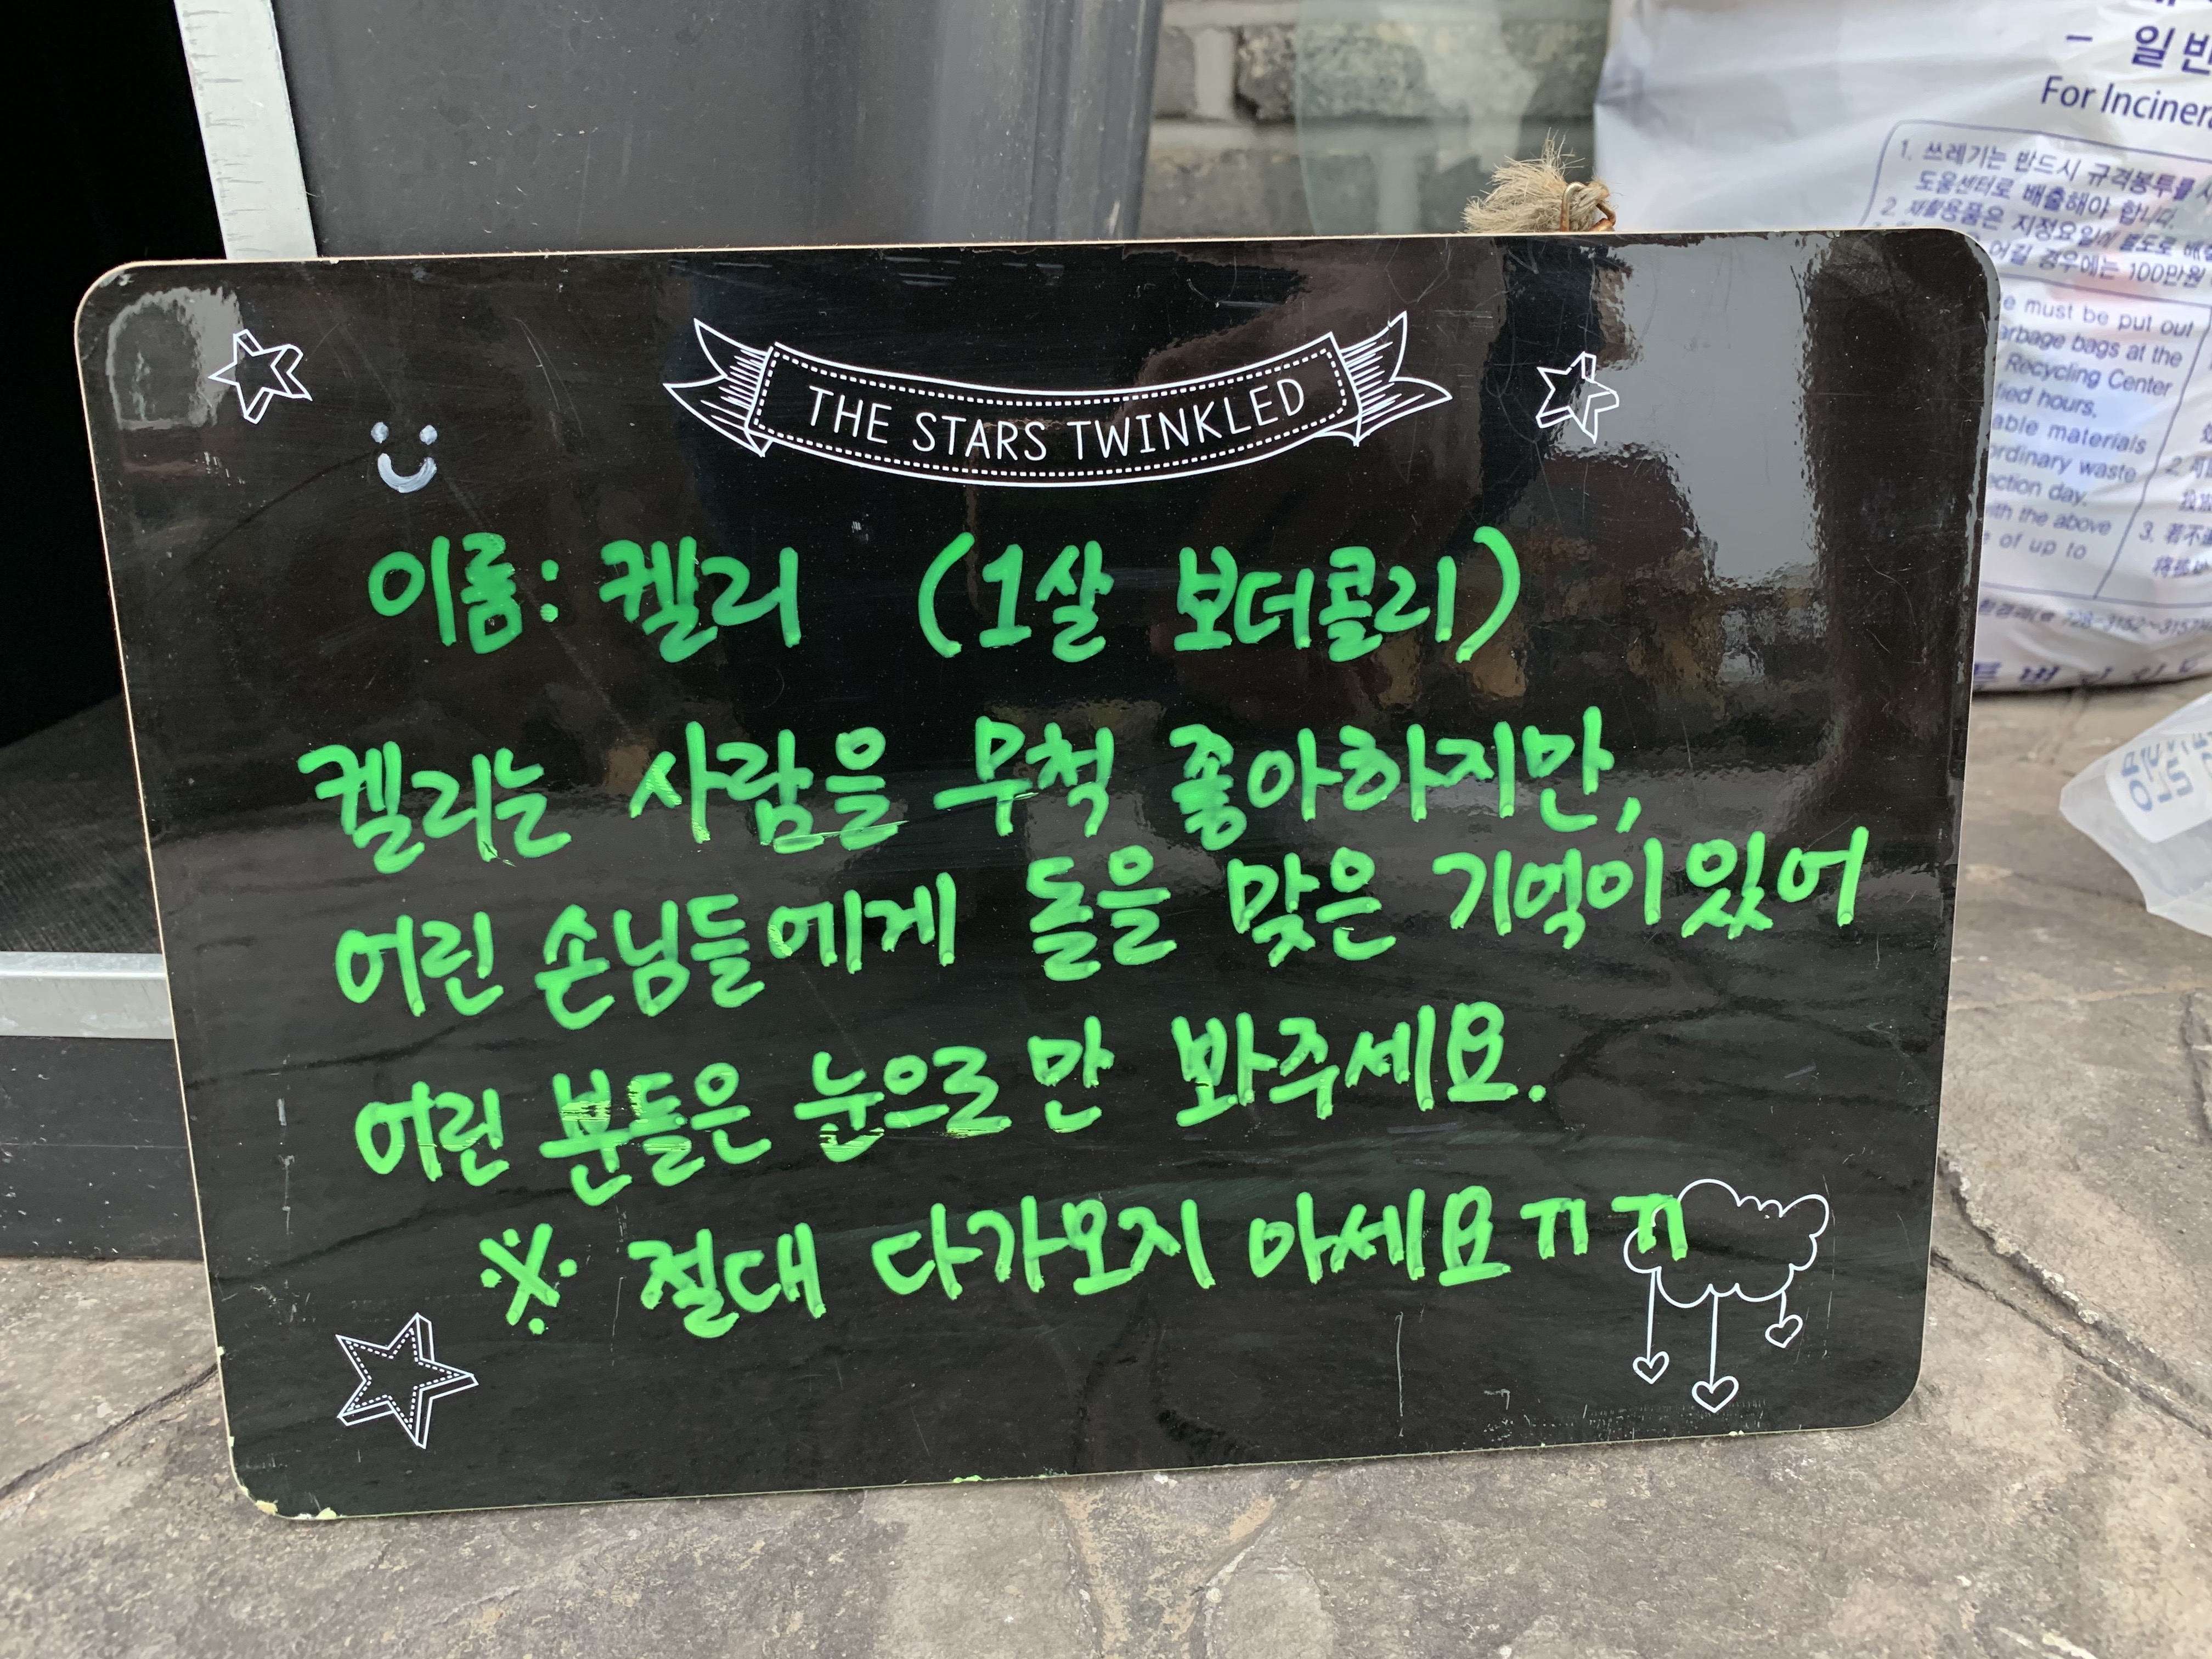 THE STARS TWINKLED
이름: 켈리 (1살 보더콜리)
켈리는 사람을 무척 좋아하지만,
어린 손님들에게 돌을 맞은 기억이 있어
어린 분들은 눈으로 만 봐주세요.
※ 절대 다가오지 마세요ㅠㅠ
- 일반
For
1. 쓰레기는 반드시 규격봉투를
도움센터로 배출해야 합니다.
2. 재활용품은 지정요일에 별도로
어길 경우에는 100만원
must be put out
garbage bags at the
Recycling Center
hours.
materials
ordinary waste
day.
with the above
of up to
2.
3. 若不